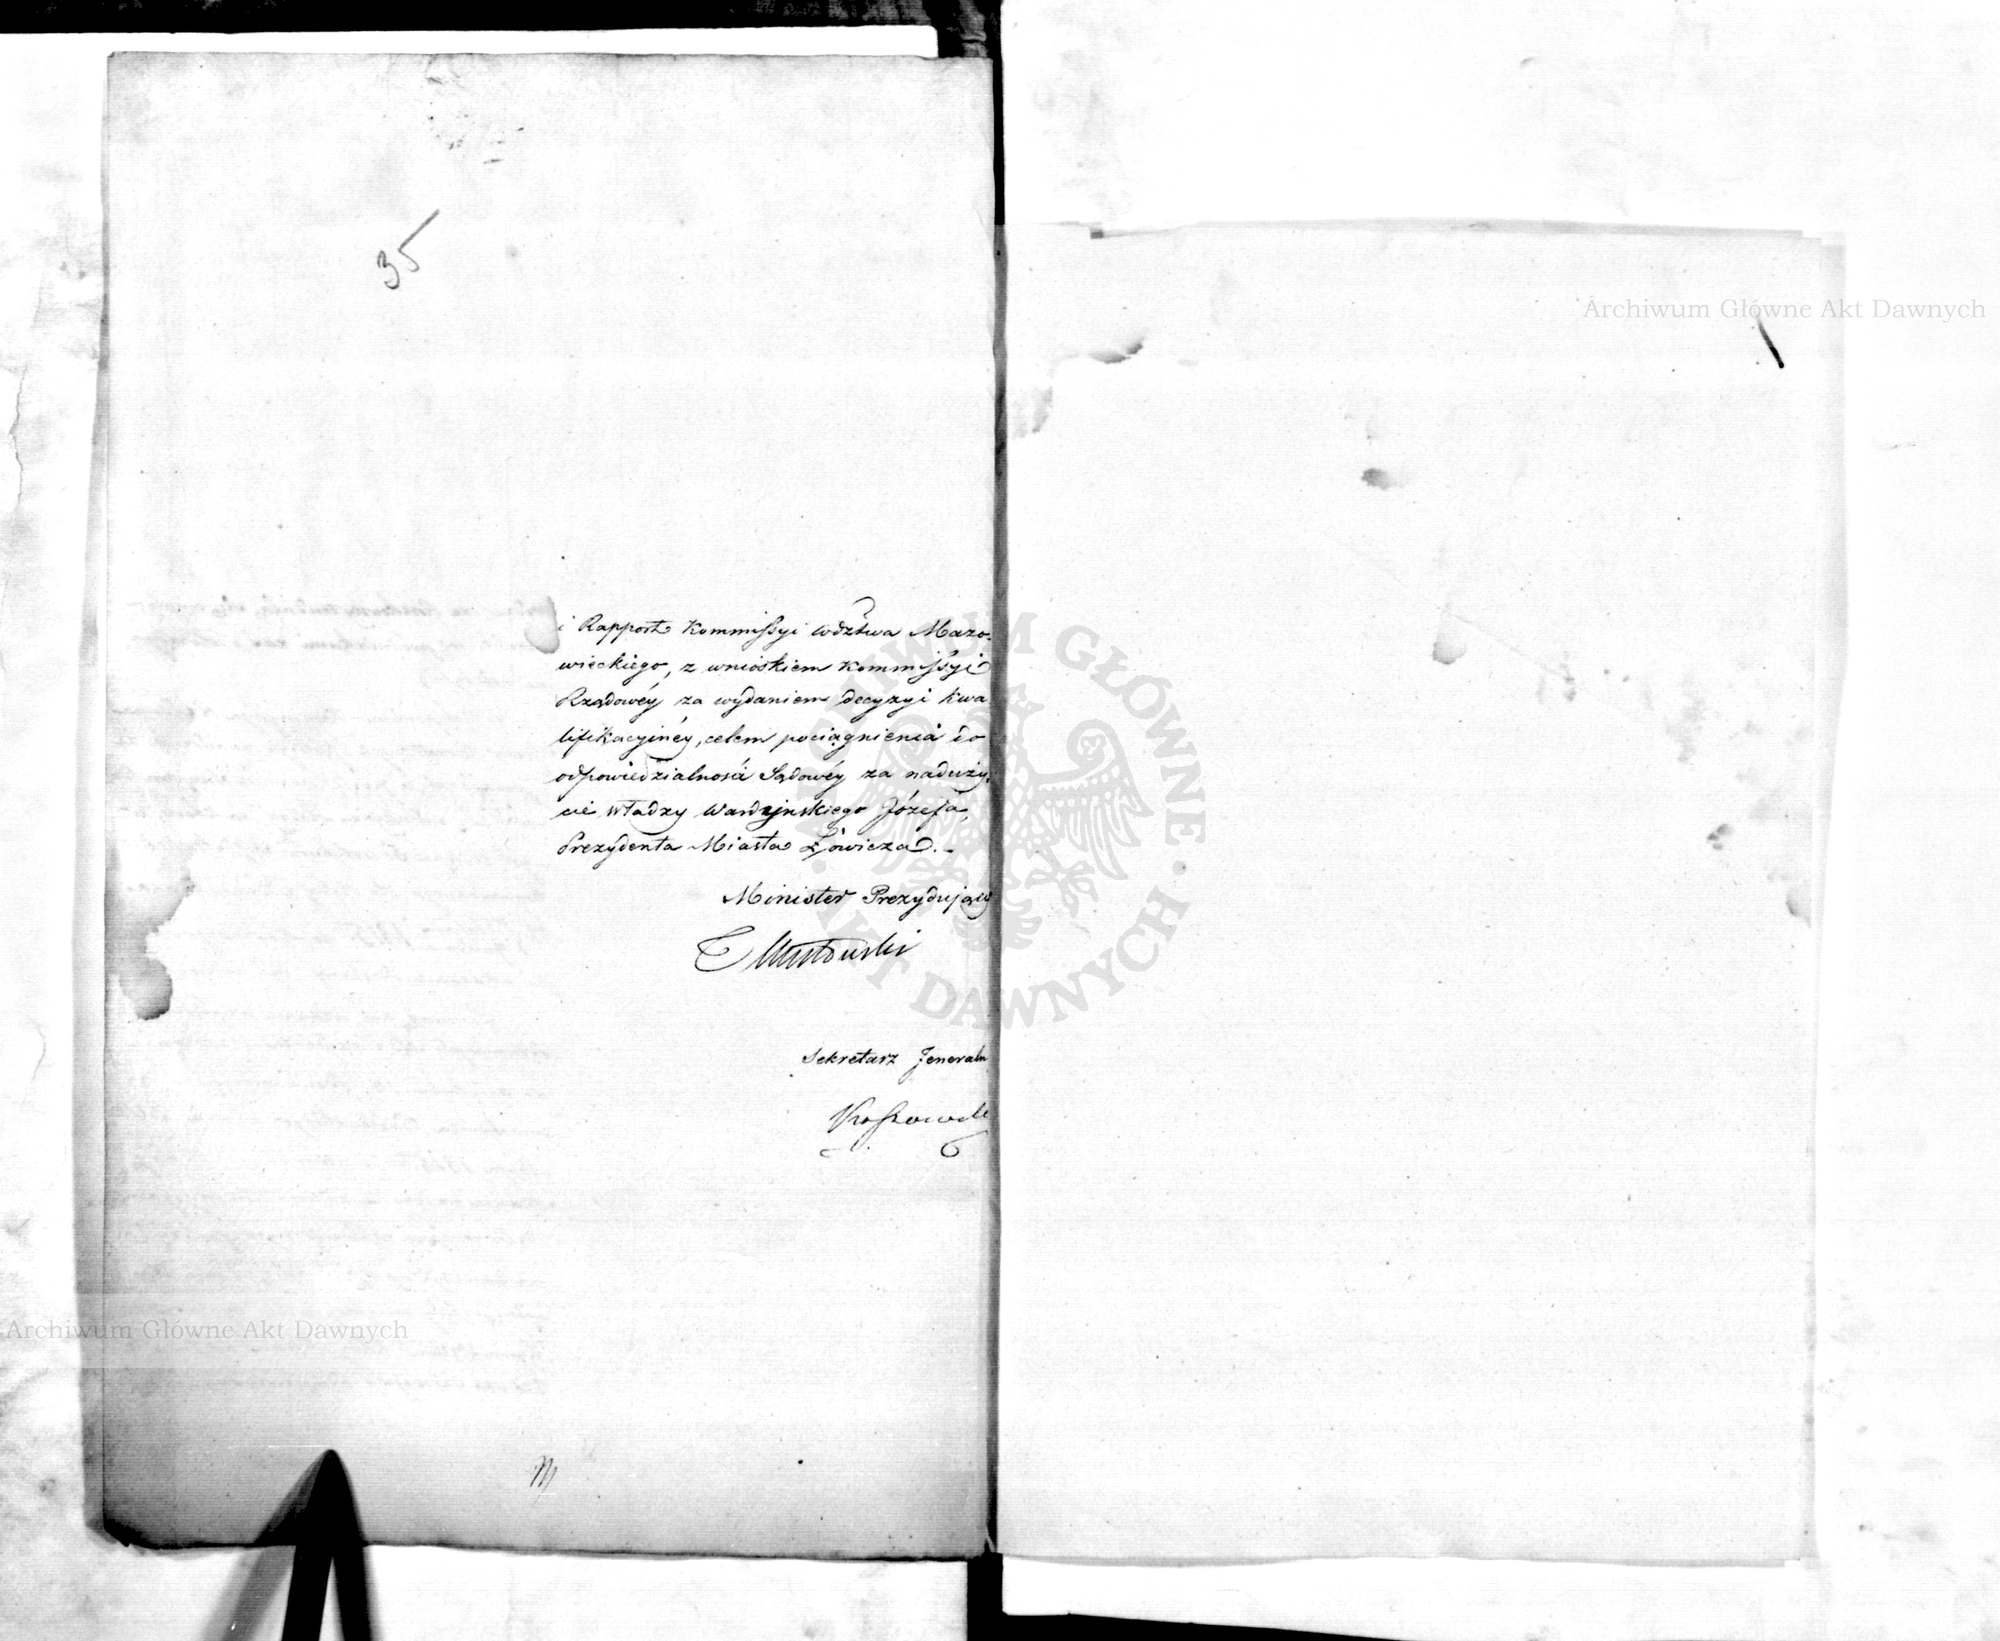 35
i Rapport Kommissyi Wdztwa Mazo-
wieckiego, z wnioskiem Kommissyi
Rządowéy za wydaniem decyzyi kwa
lifikacyinéy, celem pociągnienia do
odpowiedzialności Sądowéy za naduży-
cie władzy Józefa,
Prezydenta Miasta Łowicza.
Minister Prezydujący
T Mostowski
Sekretarz Jeneraln
Archiwum Główne Akt Dawnych
Archiwum Główne Akt Dawnych
ARCHIWUM GŁÓWNE · AKT DAWNYCH ·